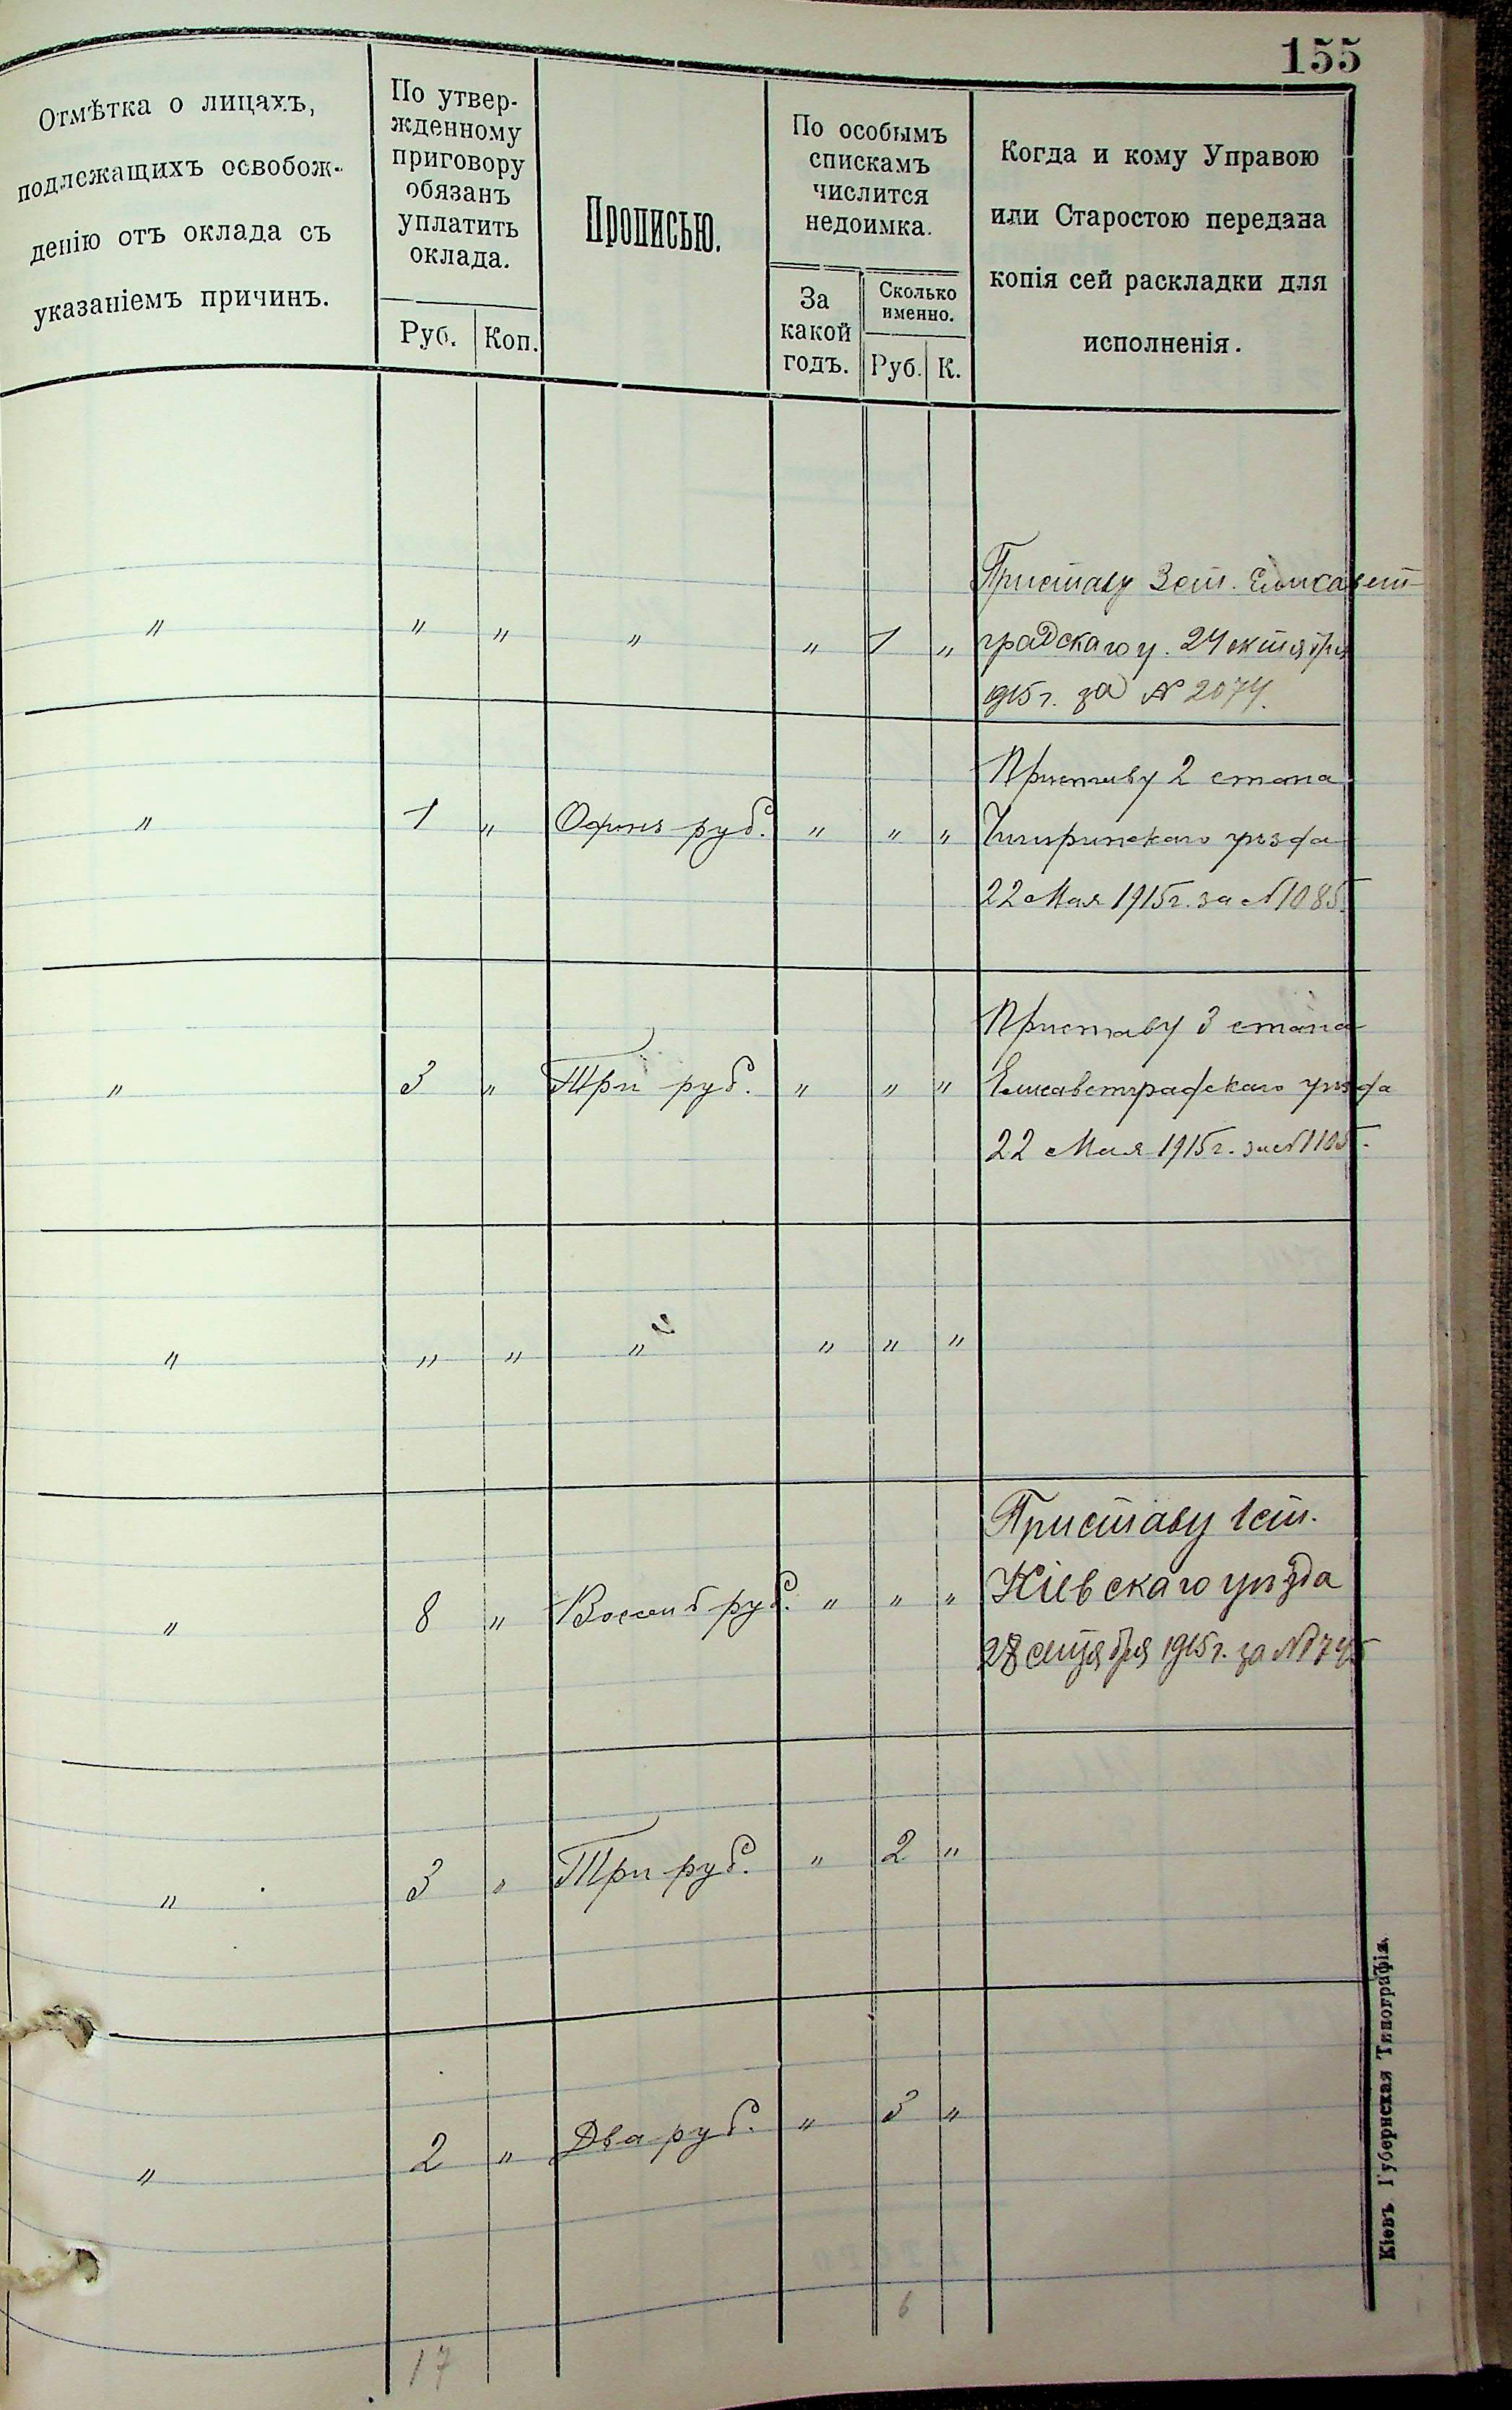 155
Отмѣтка о лицахъ,
подлежащихъ освобож-
денію отъ оклада съ
указаніемъ причинъ.
По утвер-
жденному
приговору
обязанъ
уплатить
оклада.
Руб. Коп.
Прописью.
По особымъ
спискамъ
числится
недоимка.
За
какой
годъ.
Сколько
именно.
Руб. К.
Когда и кому Управою
или Старостою передана
копія сей раскладки для
исполненія.
Приставу 3 ст. Елисавет-
" " " " " 1 " градскаго у. 24 октября
1915 г. за № 2074.
Приставу 2 стана
" 1 " Одинъ руб. " " " Чигиринскаго уѣзда
22 Мая 1915 г. за № 1085.
Приставу 3 стана
" 3 " Три руб. " " " Елисаветградскаго уѣзда
22 Мая 1915 г. за № 1105.
" " " " " " "
Приставу 1 ст.
" 8 " Восемь руб. " " " Кіевскаго уѣзда
28 сентября 1915 г. за №
" 3 " Три руб. " 2 "
" 2 " Два руб. " 3 "
6
17
Кіевъ. Губернская Типографія.